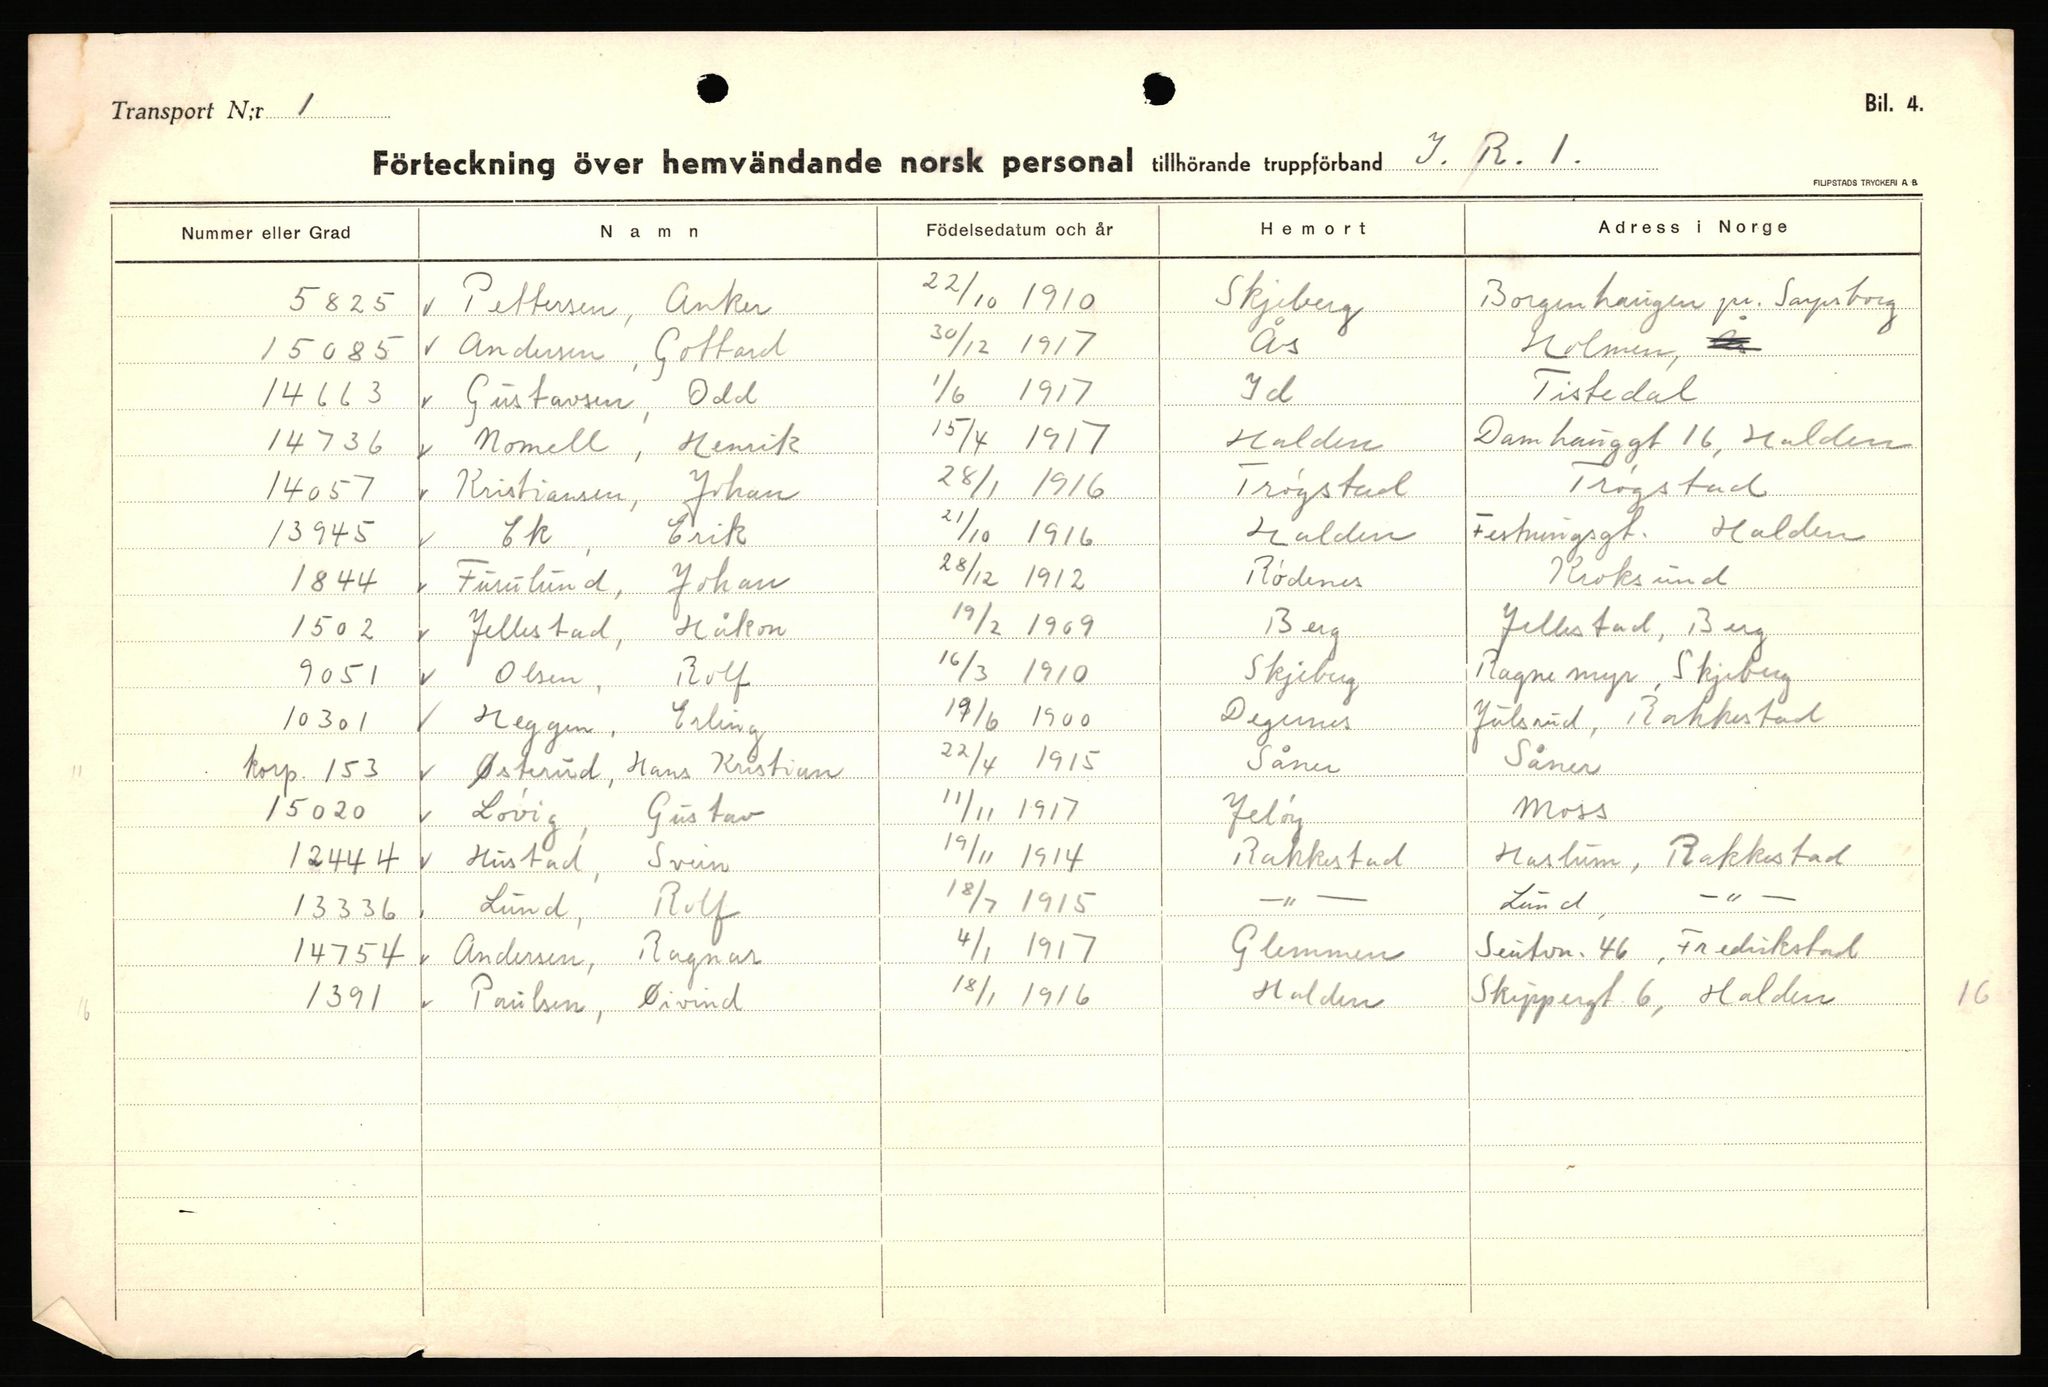 Transport N:r 1
Bil. 4.
Förteckning över hemvändande norsk personal tillhörande truppförband J. R. 1.
FILIPSTADS TRYCKERI A. B.
Nummer eller Grad Namn Födelsedatum och år Hemort Adress i Norge
5825 v Pettersen, Anker 22/10 1910 Skjeberg Borgenhaugen pr. Sarpsborg
15085 v Andersen, Gottard 30/12 1917 Ås Holmen, Ås
14663 v Gustavsen, Odd 1/6 1917 Id Tistedal
14736 v Nomell, Henrik 15/4 1917 Halden Damhauggt 16, Halden
14057 v Kristiansen, Johan 28/1 1916 Trøgstad Trøgstad
13945 v Ek, Erik 21/10 1916 Halden Festningsgt. Halden
1844 v Furulund, Johan 28/12 1912 Rødenes Kroksund
1502 v Jellestad, Håkon 19/2 1909 Berg Jellestad, Berg
9051 v Olsen, Rolf 16/3 1910 Skjeberg Ragnemyr, Skjeberg
10301 v Heggen, Erling 19/6 1900 Degernes Julsrud, Rakkestad
11 korp. 153 v Østerud, Hans Kristian 22/4 1915 Såner Såner
15020 v Løvig, Gustav 11/11 1917 Jeløy Moss
12444 v Hustad, Svein 19/11 1914 Rakkestad Haslum, Rakkestad
13336 v Lund, Rolf 18/7 1915 —"— Lund, —"—
14754 v Andersen, Ragnar 4/1 1917 Glemmen 46, Fredrikstad
16 1391 v Paulsen, Øivind 18/1 1916 Halden Skippergt 6, Halden 16